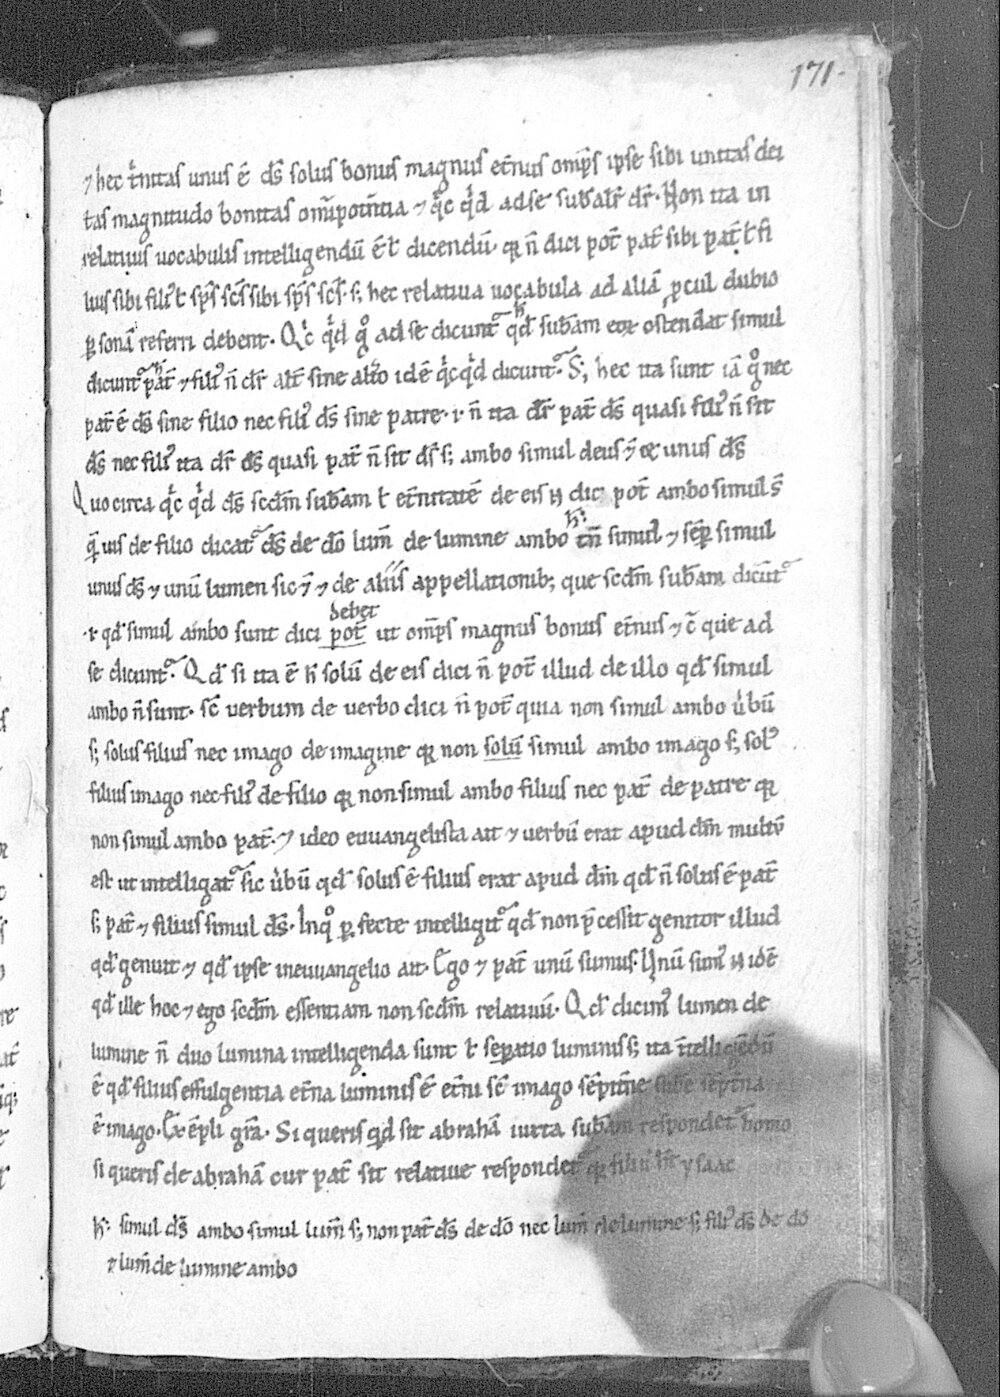 171.
⁊ hec t̾nitas unus ē dс̄ solus bonus magnus et̄nus om̄ps ipse sibi unitas dei
tas magnitudo bonitas om̄ipotn̄tia ⁊ q̾c q̾d ad se subs̄alr̄ dr̄. Non ita in
relatiuis uocabulis intelligendū ē ł dicendū. qr n̄ dici pot̄ pat̄ sibi pat̄ ł fi
lius sibi filiꝰ ł sp̄s sc̄s sibi sp̄s sc̄s. s; hec relatiua uocabula ad aliā ꝓcul dubio
ꝑsonā referri debent. Qc̾ q̾d gͦ ad se dicunt᷑ qd̄ subs̄am eoꝝ ostendat simul
dicunt᷑ pat̄ ⁊ filiꝰ n̄ dr̄ alt̄ sine alt̾o idē q̾cq̾d dicunt᷑. S; hec ita sunt iā gͦ nec
pat̄ ē ds̄ sine filio nec filiꝰ ds̄ sine patre. ⁊ n̄ ita dr̄ pat̄ ds̄ quasi filiꝰ n̄ sit
ds̄ nec filiꝰ ita dr̄ ds̄ quasi pat̄ n̄ sit ds̄ s; ambo simul deus ⁊̄ unus ds̄
Quo circa q̾c q̾d ds̄ scdm̄ subs̄am ł et̄nitatē de eis n̄ dici pot̄ ambo simul s̄
q̄uis de filio dicat᷑ ds̄ de dō lum̄ de lumine ambo tn̄ simul ⁊ sēꝑ simul
unus ds̄ ⁊ unū lumen sic ⁊̄ ⁊ de aliis appellationib; que scdm̄ subs̄am dicūt᷑
debet
.⁊ qd̄ simul ambo sunt dici pot̄ ut om̄ps magnus bonus et̄nus ⁊ c̄ que ad
se dicunt᷑. Qd̄ si ita ē h̄ solū de eis dici n̄ pot̄ illud de illo qd̄ simul
ambo n̄ sunt. sc̄ verbum de verbo dici n̄ pot̄ quia non simul ambo u̾bū
s; solus filius nec imago de imagine qr non solū simul ambo imago s; solꝰ
filius imago nec filiꝰ de filio qr non simul ambo filius nec pat̄ de patre qr
non simul ambo pat̄. ⁊ ideo euuangelista ait ⁊ verbū erat apud dm̄ multū
est ut intelligat᷑ sic u̾bū qd̄ solus ē filius erat apud dm̄ qd̄ n̄ solus ē pat̄
s; pat̄ ⁊ filius simul ds̄. Inqͦ ꝑfecte intelligit᷑ qd̄ non p̄cessit genitor illud
qd̄ genuit ⁊ qd̄ ipse in euuangelio ait. Ego ⁊ pat̄ unū sumus. Unū sumꝰ n̄ idē
qd̄ ille hoc ⁊ ego scdm̄ essentiam non scdm̄ relatiuū. Qd̄ dicimꝰ lumen de
lumine n̄ duo lumina intelligenda sunt ł seꝑatio luminis s; ita ītelligēdū
ē qd̄ filius effulgentia et̄na luminis ē et̄ni sc̄ imago sēpit̄ne subē sēpit̄na
ē imago. Ex ēpli gr̄a. Si queris qd̄ sit abrahā iuxta subs̄am respondet᷑ homo
si queris de abrahā cur pat̄ sit relatiue respondet᷑ qr filiū ht̄ ysaac
h̄: simul ds̄ ambo simul lum̄ s; non pat̄ ds̄ de dō nec lum̄ de lumine s; filiꝰ ds̄ de dō
⁊ lum̄ de lumine ambo